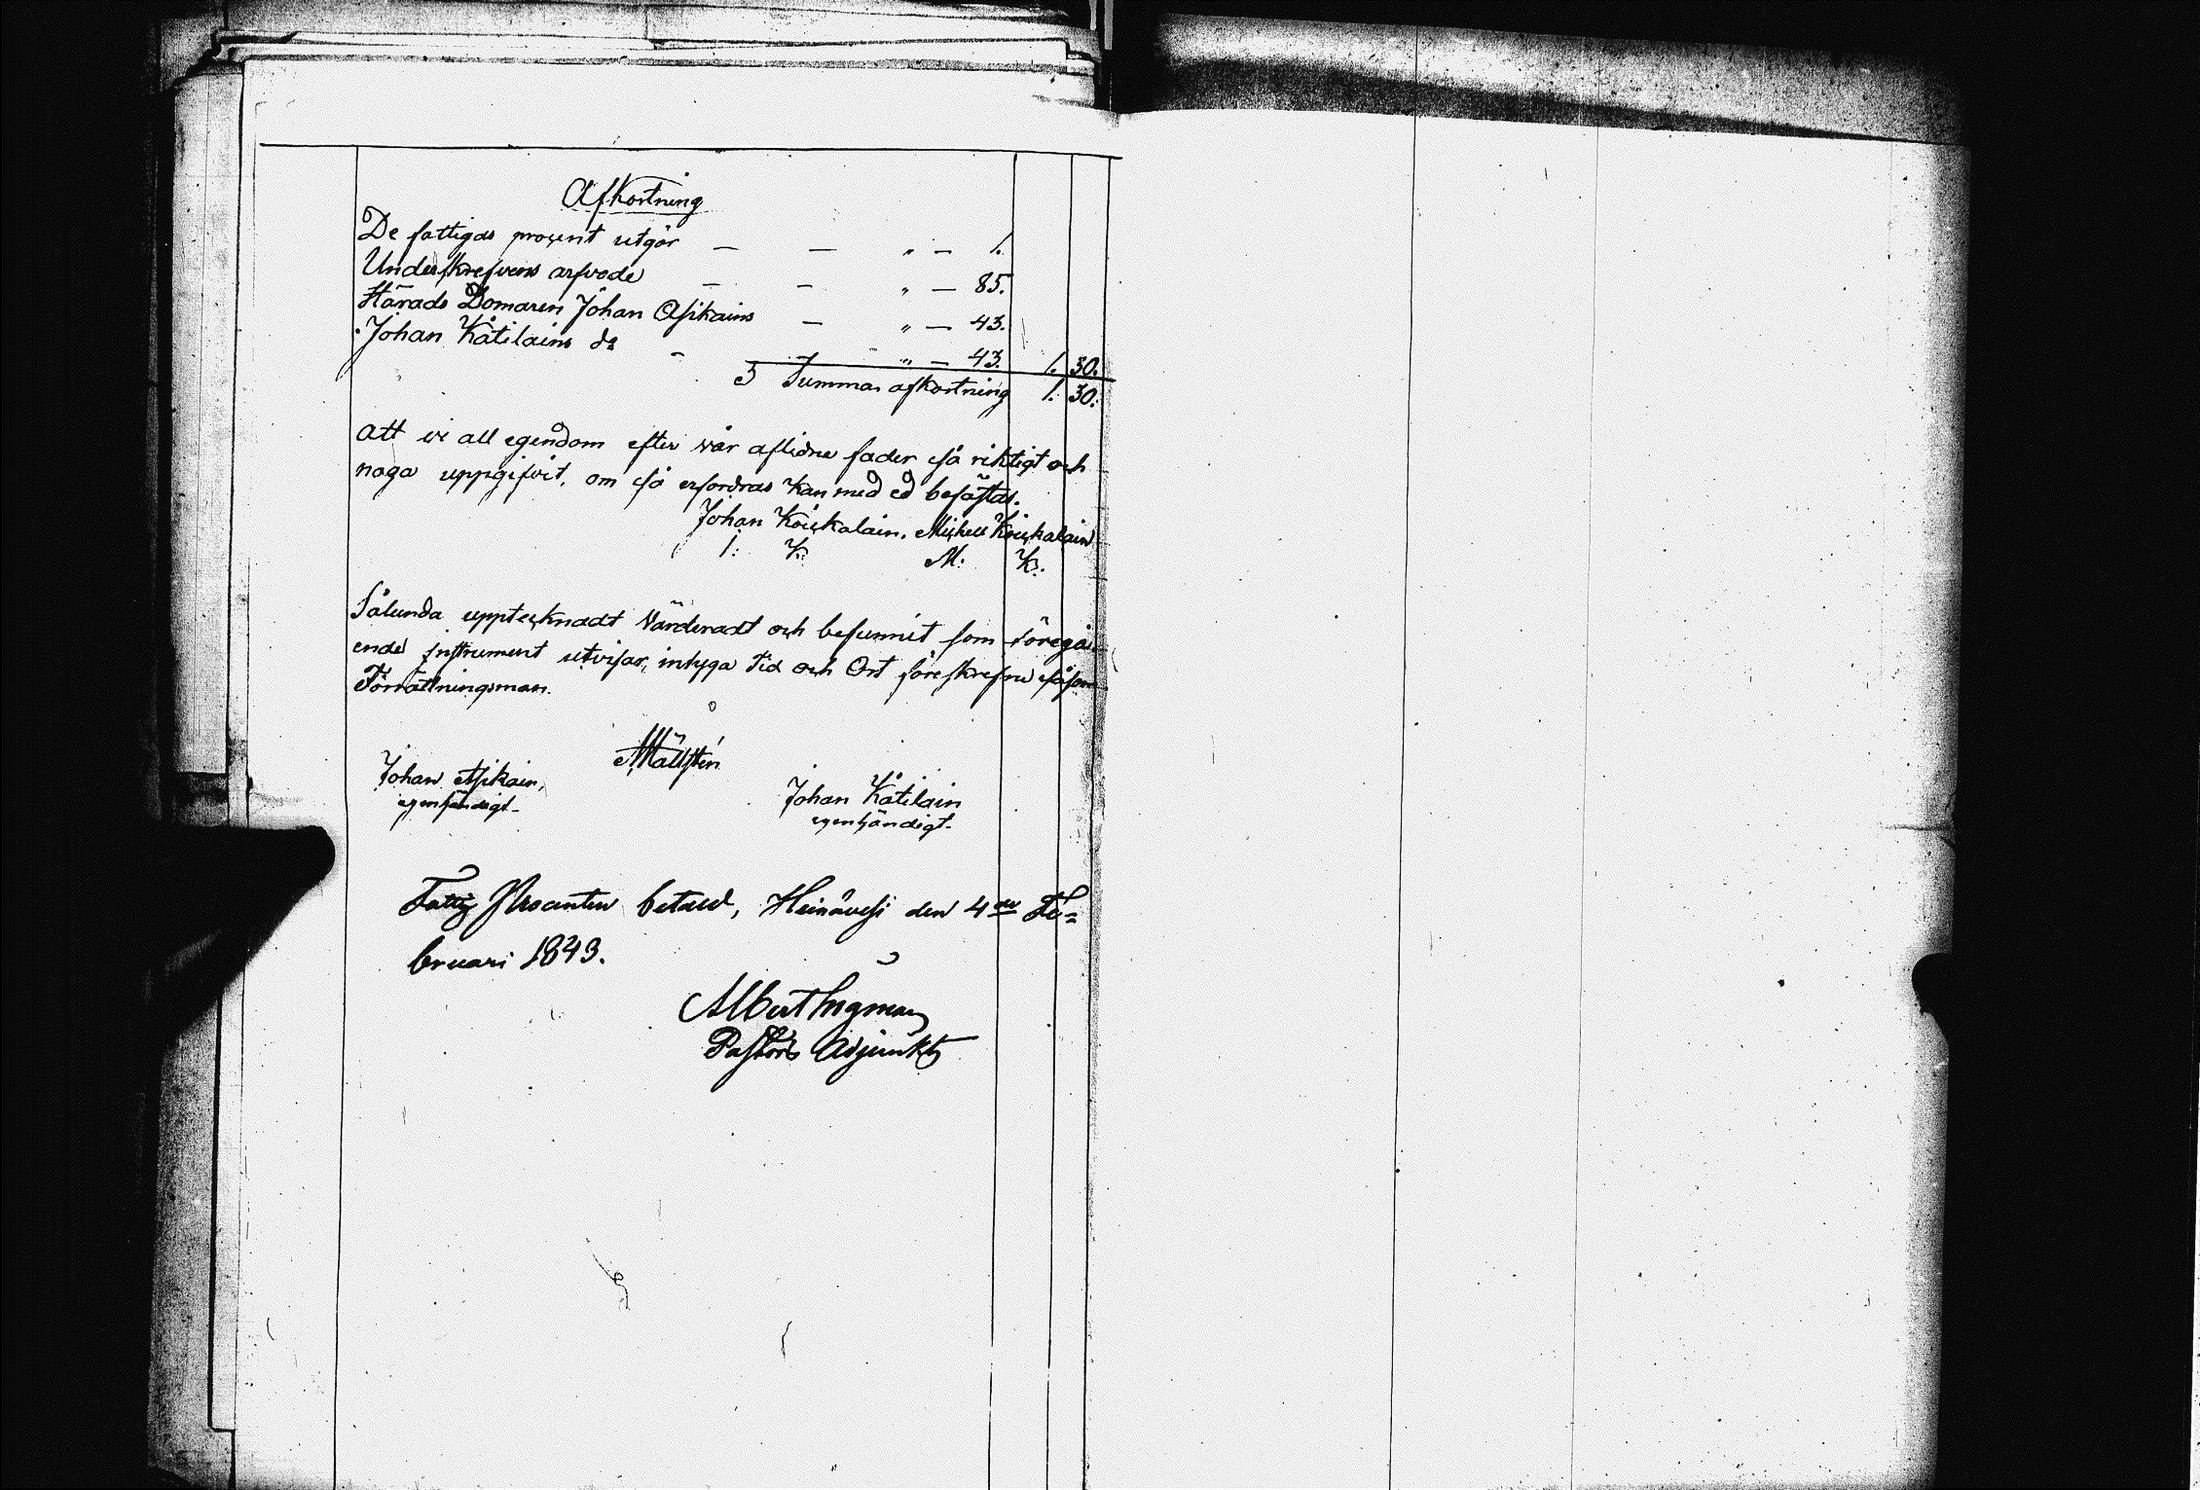 Afkortning
De fattigas procent utgör — — " — 1.
Underskrefvens arfvode — — " — 85.
Härads Domaren Johan Asikains — " — 43.
Johan Kåtilains do - - " — 43. 1. 30.
Summa afkortning 1. 30.
Att vi all egendom efter vår aflidne fader så riktigt och
noga uppgifvit, om så erfordras kan med ed befästas.
Johan Koickalain. Michell Koickalain
J: K: M: K:
Sålunda upptecknadt Värderadt och befunnit som föregå-
ende Instrument utvisar, intyga Tid och Ort föreskrefne såsom
Förrättningsmän.
Johan Asikain,
egenhändigt-
Johan Kåtilain
egenhändigt-
Fattig Procenten betald, Heinävesi den 4de Fe=
bruari 1843.
Albert Ingman
Pastors Adjunkt